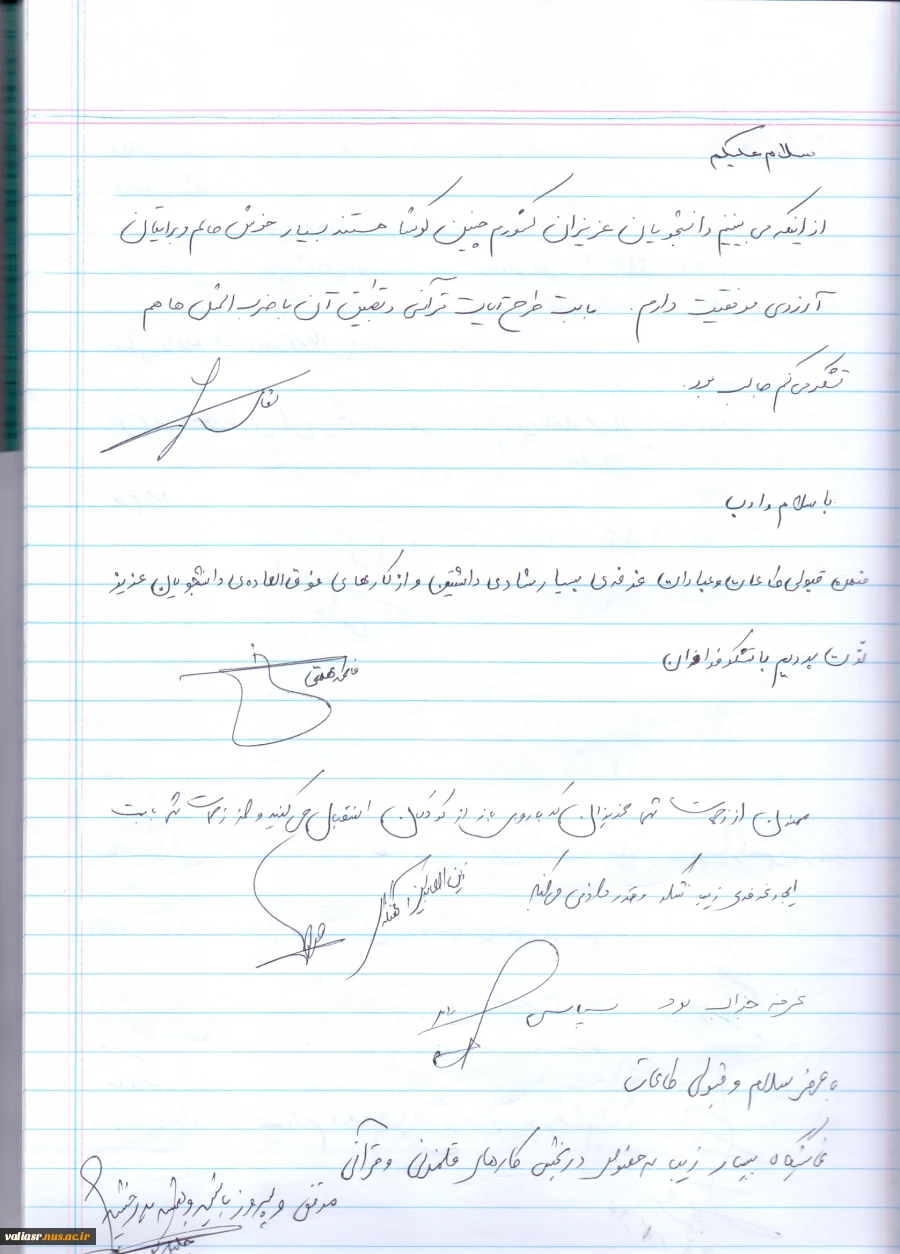 سلام علیکم
از اینکه می بینم دانشجویان عزیزان کشورم چنین کوشا هستند بسیار خوش حالم و برایتان
آرزوی موفقیت دارم. بابت طرح آیات قرآنی و تطبیق آن با ضرب المثل ها هم
تشکر می کنم جالب بود.
با سلام و ادب
ضمن قبولی طاعات و عبادات غرفه ی بسیار شادی داشتین و از کارهای فوق العاده ی دانشجویان عزیز
لذت بردیم با تشکر فراوان
فاطمه همتی
ممنون از زحمات شما عزیزان که با روی باز از کودکان استقبال می کنید و از زحمات شما بابت
ایجاد غرفه ی زیبا تشکر و قدردانی می کنم
زین العابدین
غرفه جذاب بود سپاس
با عرض سلام و قبولی طاعات
نمایشگاه بسیار زیبا به خصوص در بخش کارهای و قرآنی
موفق و پیروز باشید و
valiasr.nus.ac.ir